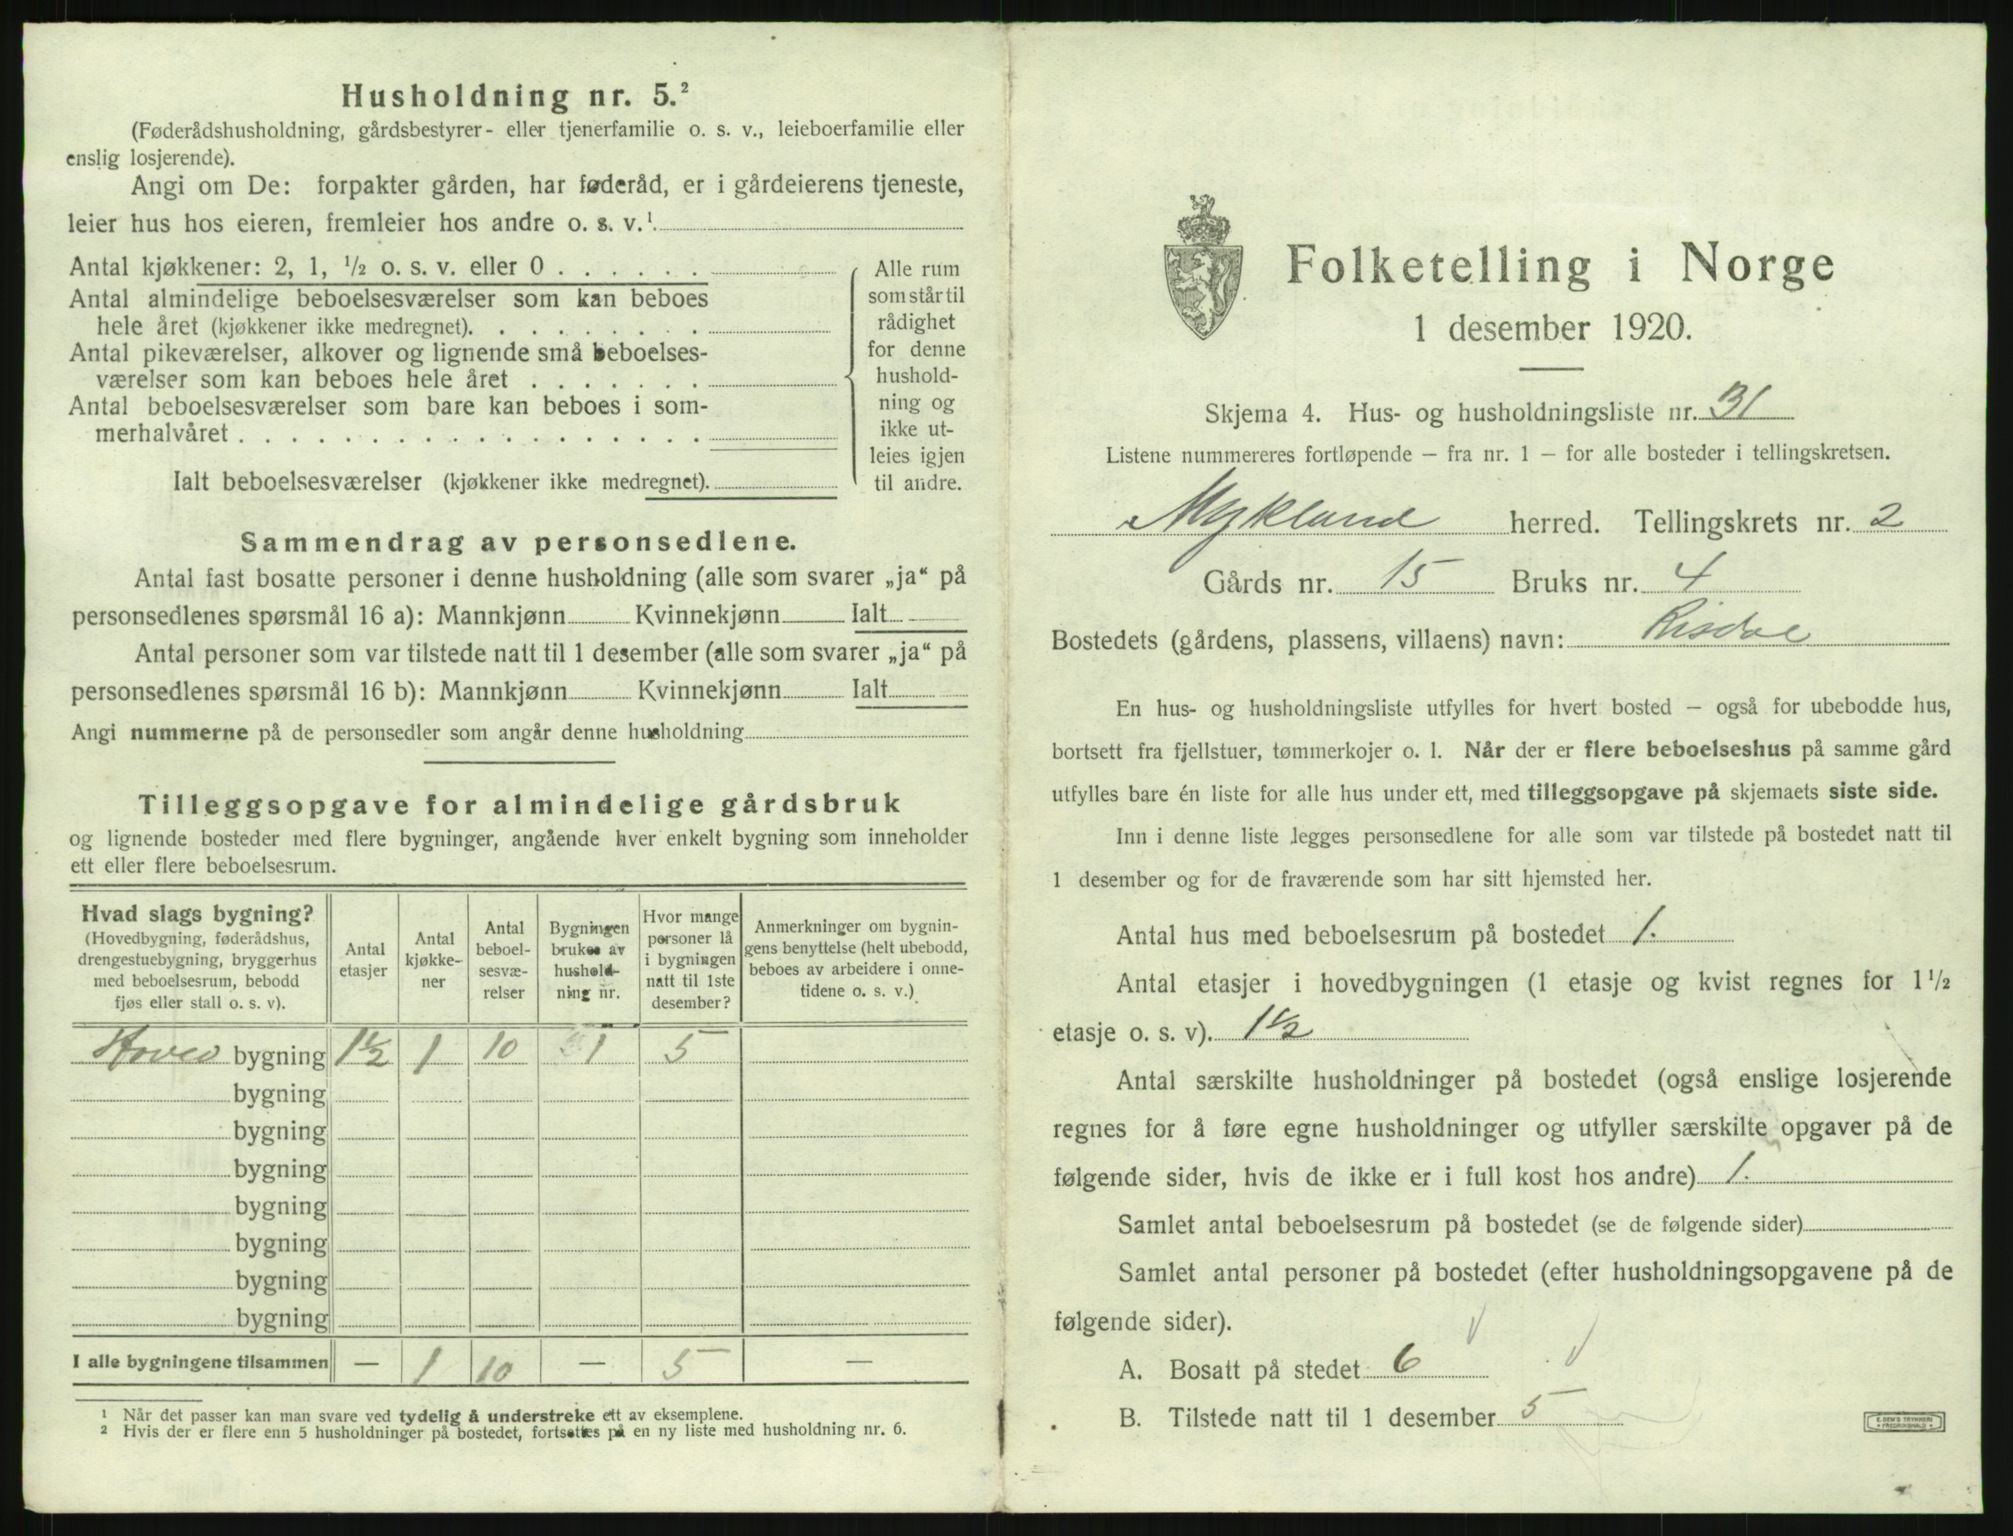 Husholdning nr. 5.²
(Føderådshusholdning, gårdsbestyrer- eller tjenerfamilie o. s. v., leieboerfamilie eller
enslig losjerende).
Angi om De: forpakter gården, har føderåd, er i gårdeierens tjeneste,
leier hus hos eieren, fremleier hos andre o. s. v.¹
Antal kjøkkener: 2, 1, ½ o. s. v. eller 0 . . . . . .
Antal almindelige beboelsesværelser som kan beboes
hele året (kjøkkener ikke medregnet). . . . . . . . .
Antal pikeværelser, alkover og lignende små beboelses-
værelser som kan beboes hele året . . . . . . .
Antal beboelsesværelser som bare kan beboes i som-
merhalvåret . . . . . . . . . . . . . . . . . .
Ialt beboelsesværelser (kjøkkener ikke medregnet).
Alle rum
som står til
rådighet
for denne
hushold-
ning og
ikke ut-
leies igjen
til andre.
Sammendrag av personsedlene.
Antal fast bosatte personer i denne husholdning (alle som svarer „ja“ på
personsedlenes spørsmål 16 a): Mannkjønn Kvinnekjønn Ialt
Antal personer som var tilstede natt til 1 desember (alle som svarer „ja“ på
personsedlenes spørsmål 16 b): Mannkjønn Kvinnekjønn Ialt
Angi nummerne på de personsedler som angår denne husholdning
Tilleggsopgave for almindelige gårdsbruk
og lignende bosteder med flere bygninger, angående hver enkelt bygning som inneholder
ett eller flere beboelsesrum.
Hvad slags bygning?
(Hovedbygning, føderådshus,
drengestuebygning, bryggerhus
med beboelsesrum, bebodd
fjøs eller stall o. s. v).
Antal
etasjer
Antal
kjøkke-
ner
Antal
beboel-
sesvæ-
relser
Bygningen
brukes av
hushold-
ning nr.
Hvor mange
personer lå
i bygningen
natt til 1ste
desember?
Anmerkninger om bygnin-
gens benyttelse (helt ubebodd,
beboes av arbeidere i onne-
tidene o. s. v.)
Hoved bygning 1½ 1 10 1 5
bygning
bygning
bygning
bygning
bygning
bygning
bygning
I alle bygningene tilsammen — 1 10 — 5 —
¹ Når det passer kan man svare ved tydelig å understreke ett av eksemplene.
² Hvis der er flere enn 5 husholdninger på bostedet, fortsettes på en ny liste med husholdning nr. 6.
Folketelling i Norge
1 desember 1920.
Skjema 4. Hus- og husholdningsliste nr. 31
Listene nummereres fortløpende – fra nr. 1 – for alle bosteder i tellingskretsen.
Mykland herred. Tellingskrets nr. 2
Gårds nr. 15 Bruks nr. 4
Bostedets (gårdens, plassens, villaens) navn: Risdal
En hus- og husholdningsliste utfylles for hvert bosted – også for ubebodde hus,
bortsett fra fjellstuer, tømmerkojer o. l. Når der er flere beboelseshus på samme gård
utfylles bare én liste for alle hus under ett, med tilleggsopgave på skjemaets siste side.
Inn i denne liste legges personsedlene for alle som var tilstede på bostedet natt til
1 desember og for de fraværende som har sitt hjemsted her.
Antal hus med beboelsesrum på bostedet 1.
Antal etasjer i hovedbygningen (1 etasje og kvist regnes for 1½
etasje o. s. v). 1½
Antal særskilte husholdninger på bostedet (også enslige losjerende
regnes for å føre egne husholdninger og utfyller særskilte opgaver på de
følgende sider, hvis de ikke er i full kost hos andre) 1.
Samlet antal beboelsesrum på bostedet (se de følgende sider)
Samlet antal personer på bostedet (efter husholdningsopgavene på de
følgende sider).
A. Bosatt på stedet 6
B. Tilstede natt til 1 desember 5
E. SEM'S TRYKKERI
FREDRIKSHALD